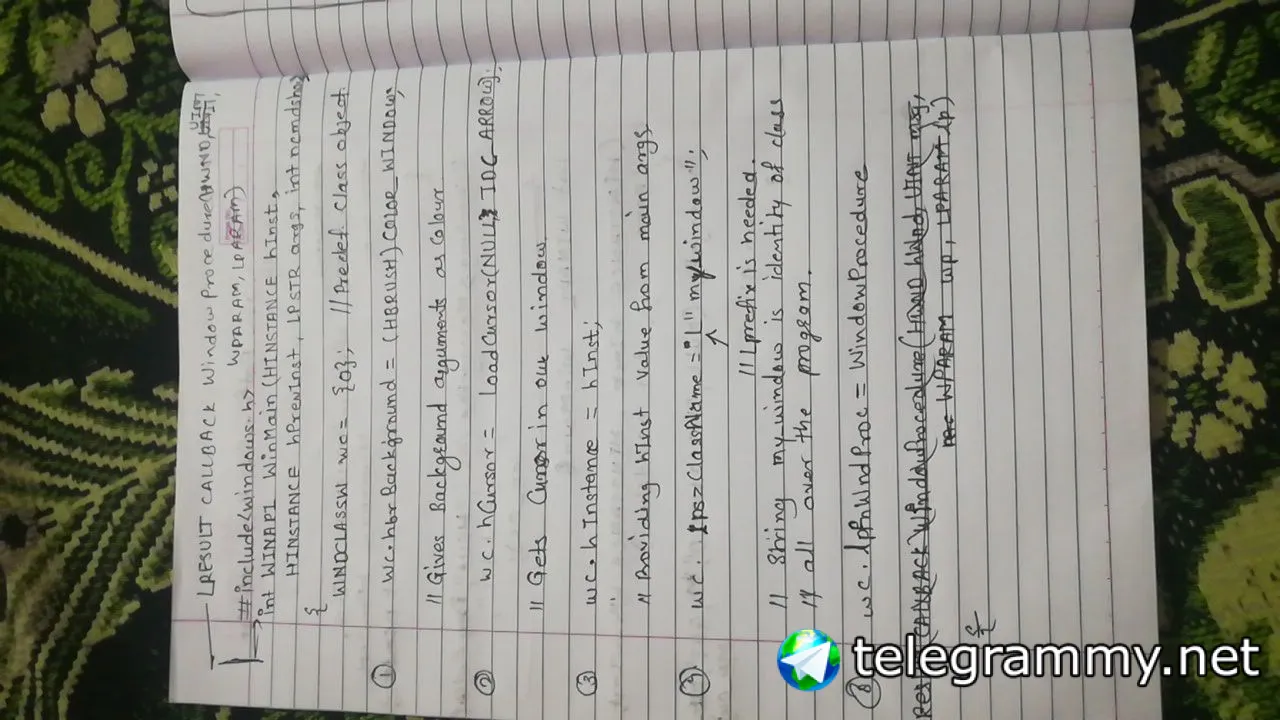 LRESULT CALLBACK WindowProcedure(HWND, UINT,
WPARAM, LPARAM)
#include<windows.h>
int WINAPI WinMain(HINSTANCE hInst,
HINSTANCE hPrevInst, LPSTR args, int ncmdshow)
{
WNDCLASSW wc = {0}; // Predef class object
① wc.hbrBackground = (HBRUSH)COLOR_WINDOW;
// Gives Background arguments as colour
② wc.hCursor = LoadCursor(NULL, IDC_ARROW);
// Gets Cursor in our window
③ wc.hInstance = hInst;
// Providing hInst value from main args
③ wc. lpszClassName = "L" mywindow";
↑
// L prefix is needed.
// String mywindow is identity of class
// all over the program.
wc.lpfnWndProc = WindowProcedure
CALLBACK WindowProcedure(HWND hWnd, UINT msg,
WPARAM wp, LPARAM lp)
{
telegrammy.net